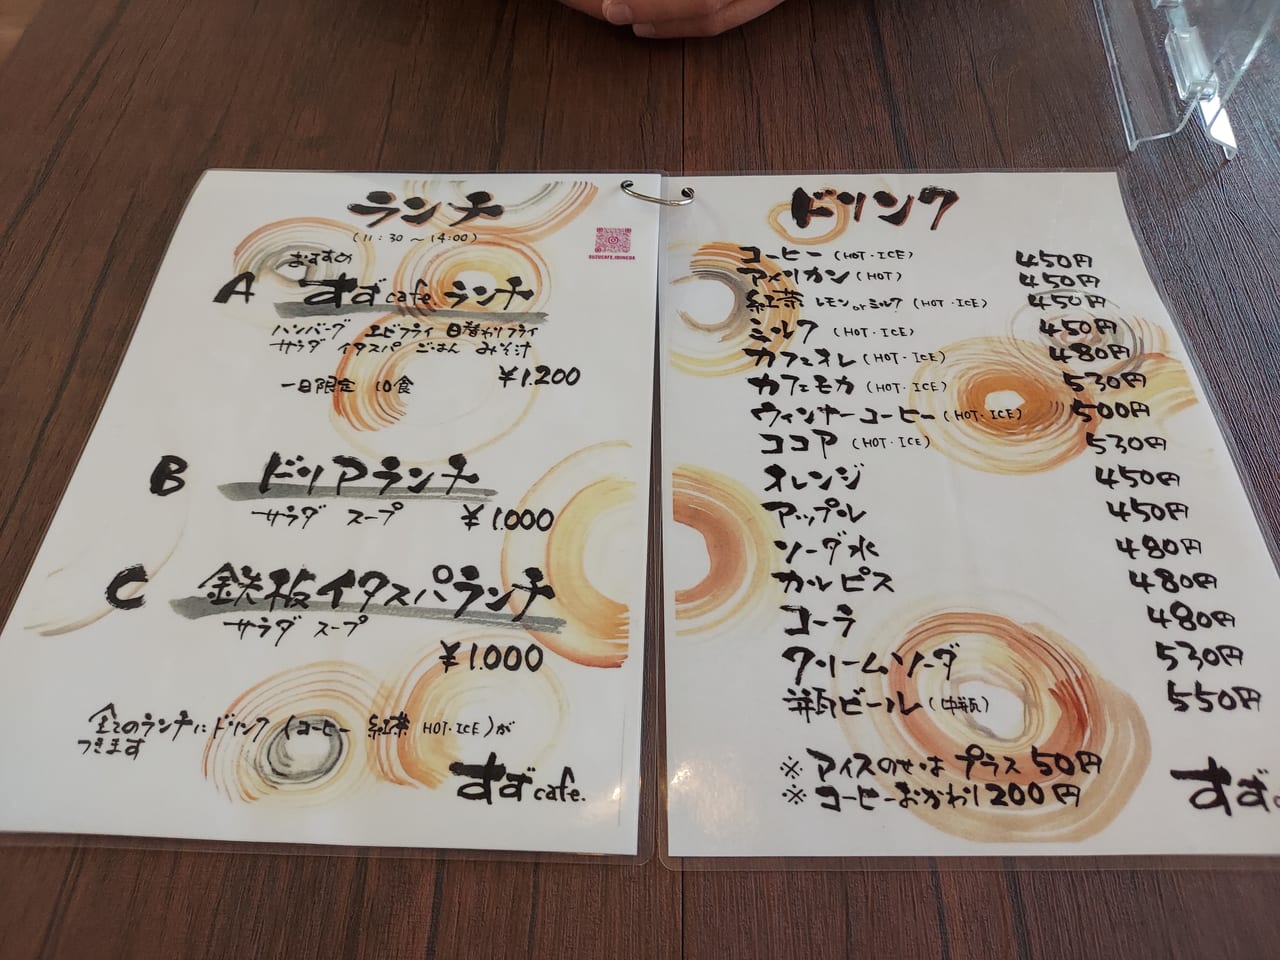 ランチ
(11:30～14:00)
おすすめ
A すずcafe.ランチ
ハンバーグ エビフライ 日替わりフライ
サラダ イタスパ ごはん みそ汁
一日限定 10食 ¥1.200
B ドリアランチ
サラダ スープ ¥1.000
C 鉄板イタスパランチ
サラダ スープ
¥1.000
全てのランチにドリンク(コーヒー 紅茶 HOT・ICE)が
つきます
すずcafe.
ドリンク
コーヒー(HOT・ICE) 450円
アメリカン(HOT) 450円
紅茶 レモンorミルク(HOT・ICE) 450円
ミルク(HOT・ICE) 450円
カフェオレ(HOT・ICE) 480円
カフェモカ(HOT・ICE) 530円
ウィンナーコーヒー(HOT・ICE) 500円
ココア(HOT・ICE) 530円
オレンジ 450円
アップル 450円
ソーダ水 480円
カルピス 480円
コーラ 480円
クリームソーダ 530円
瓶ビール(中瓶) 550円
※アイスのせはプラス50円
※コーヒーおかわり200円
すず